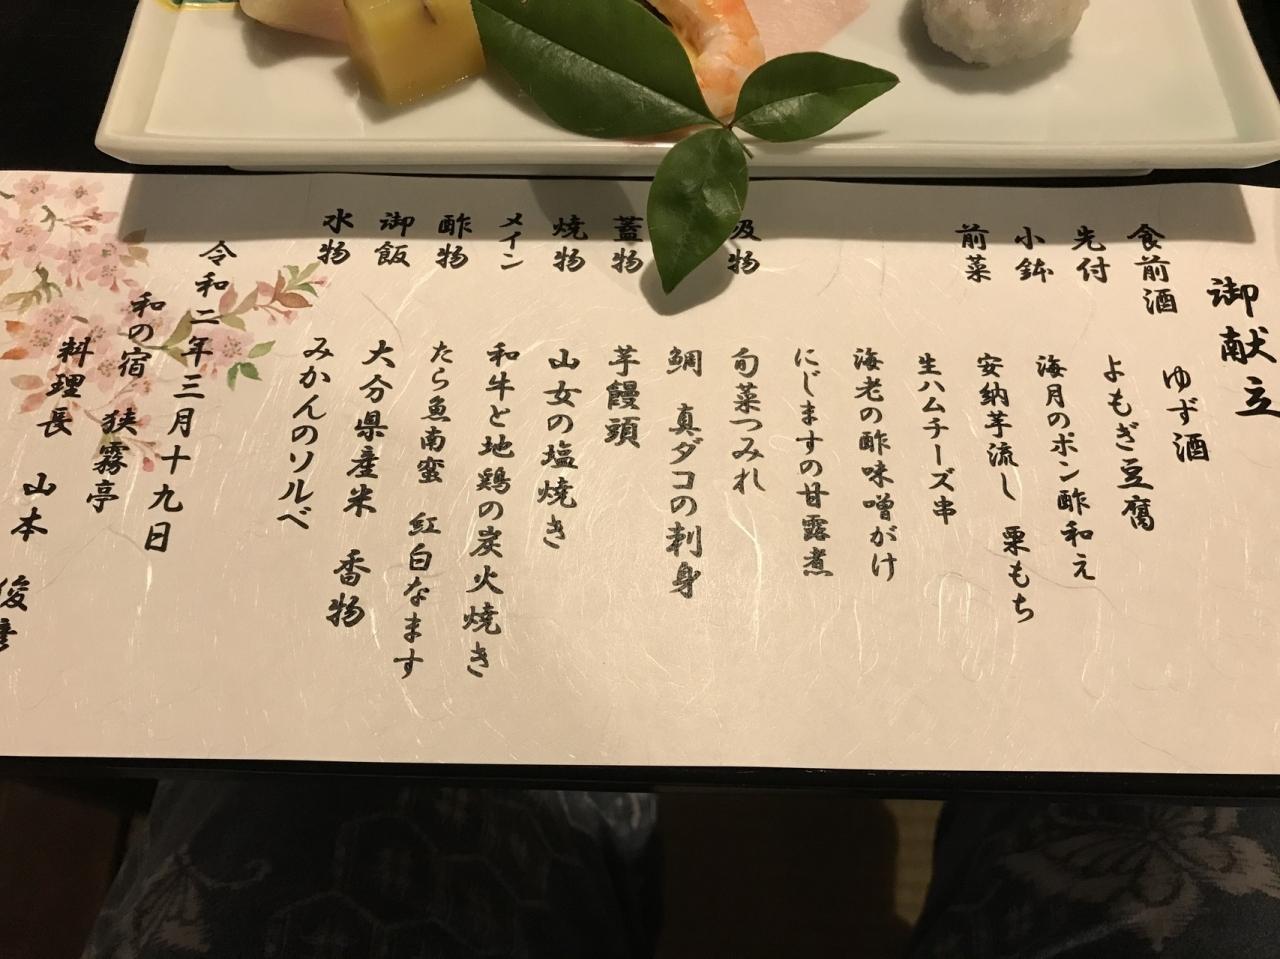 御献立
食前酒 ゆず酒
先付 よもぎ豆腐
小鉢 海月のポン酢和え
前菜 安納芋流し 栗もち
生ハムチーズ串
海老の酢味噌がけ
にじますの甘露煮
吸物 旬菜つみれ
鯛 真ダコの刺身
蓋物 芋饅頭
焼物 山女の塩焼き
メイン 和牛と地鶏の炭火焼き
酢物 たら魚南蛮 紅白なます
御飯 大分県産米 香物
水物 みかんのソルベ
令和二年三月十九日
和の宿 狭霧亭
料理長 山本 俊彦